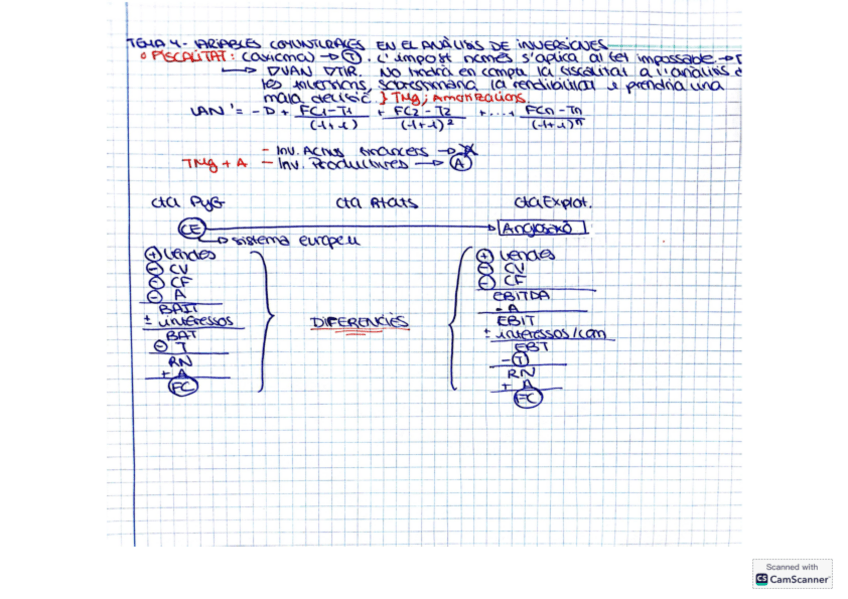 TEMA 4.- VARIABLES CONJUNTURALES EN EL ANÀLISIS DE INVERSIONES
FISCALITAT: → T. L'impost només s'aplica al fet imposable →
→ ∇VAN ∇TIR. No tindre en compte la fiscalitat a l'anàlisis
les inversions, sobreestimaria la rendibilitat i prendria una
mala decisió. } TMg; Amortitzacions.
VAN' = -D + FC1-T1 / (1+i) + FC2-T2 / (1+i)² + ... + FCn-Tn / (1+i)ⁿ
TMg + A
- Inv. Actius Financers → A
- Inv. Productives → A
cta PyG cta Rtats cta Explot.
CE → Anglosaxó
→ sistema europeu
+ Vendes
- CV
- CF
- A
BAIT
± interessos
BAT
- T
RN
+ A
FC
DIFERÈNCIES
+ Vendes
- CV
- CF
EBITDA
- A
EBIT
± interessos/com
EBT
- T
RN
+ A
FC
Scanned with
CS CamScanner